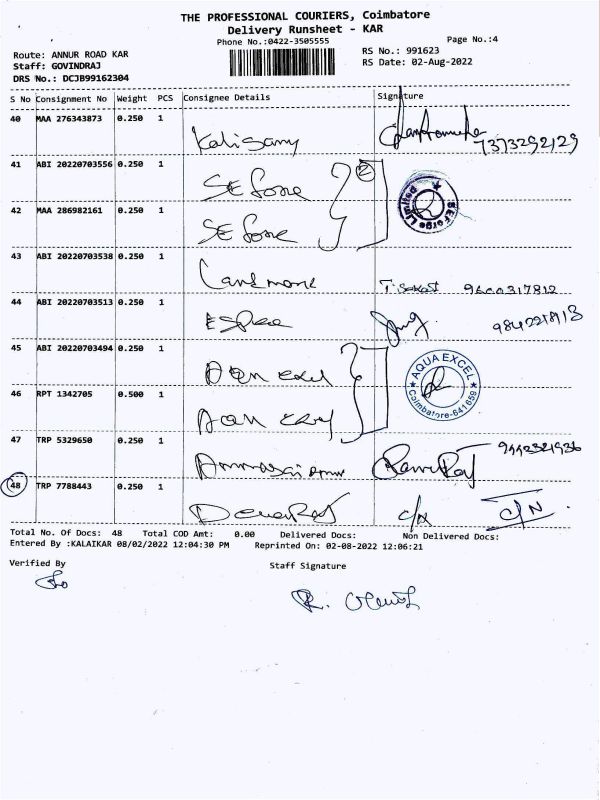 THE PROFESSIONAL COURIERS, Coimbatore
Delivery Runsheet - KAR
Phone No.:0422-3505555
Page No.:4
Route: ANNUR ROAD KAR
RS No.: 991623
Staff: GOVINDRAJ
RS Date: 02-Aug-2022
DRS No.: DCJB99162304
S No Consignment No Weight PCS Consignee Details Signature
40 MAA 276343873 0.250 1
Kalisamy 7373292129
41 ABI 20220703556 0.250 1
SE forge 2
SE Forge Limited
42 MAA 286982161 0.250 1
SE forge
43 ABI 20220703538 0.250 1
Landmark 9600317812
44 ABI 20220703513 0.250 1
45 ABI 20220703494 0.250 1
AQUA EXCEL
Coimbatore-641659
46 RPT 1342705 0.500 1
47 TRP 5329650 0.250 1
48 TRP 7788443 0.250 1
C/N C/N
Total No. Of Docs: 48 Total COD Amt: 0.00 Delivered Docs: Non Delivered Docs:
Entered By :KALAIKAR 08/02/2022 12:04:30 PM Reprinted On: 02-08-2022 12:06:21
Verified By
Staff Signature